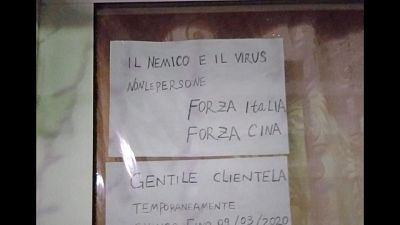 IL NEMICO E IL VIRUS
NON LE PERSONE
FORZA ITALIA
FORZA CINA
GENTILE CLIENTELA
TEMPORANEAMENTE
FINO 09/03/2020